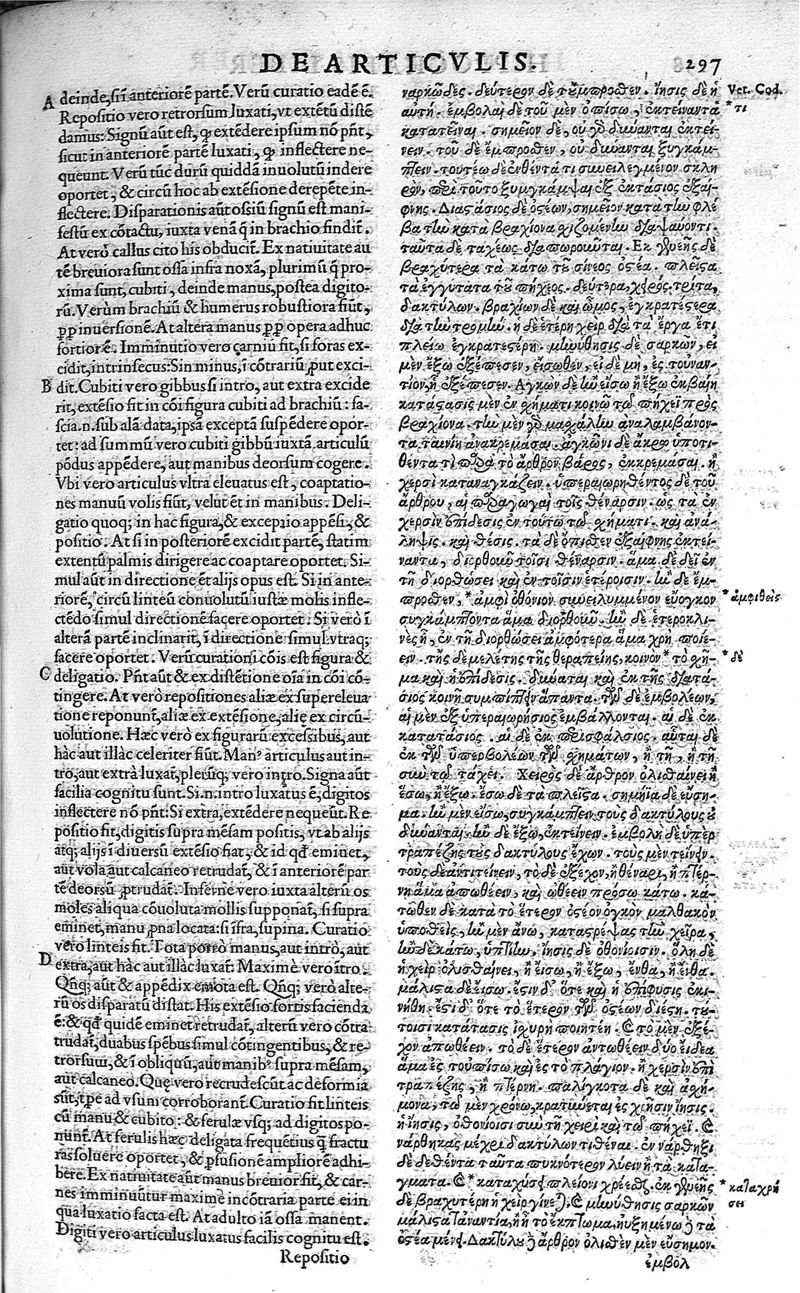 DE ARTICVLIS.
297
A deinde, si ī anteriorē partē. Verū curatio eadē ē.
Repositio vero retrorsum luxati, vt extētū distē
damus: Signū aūt est, ꝙ extēdere ipsum nō pn̄t,
sicut in anteriorē partē luxati, ꝙ inflectere ne-
queunt. Verū tūc durū quiddā inuolutū indere
oportet, & circū hoc ab extēsione derepēte in-
flectere. Disparationis aūt ossiū signū est mani-
festū ex cōtactu, iuxta venā q̄ in brachio findit.
At verò callus cito his obducit. Ex natiuitate au
tē breuiora sunt ossa infra noxā, plurimū q̄ pro-
xima sunt, cubiti, deinde manus, postea digito-
rū. Verùm brachiū & humerus robustiora fiūt,
ꝓp inuersionē. At altera manus ꝓp opera adhuc
fortiorē. Imminutio vero carniū fit, si foras ex-
cidit, intrinsecus: Sin minus, i cōtrariū ꝓut exci-
B dit. Cubiti vero gibbus si intro, aut extra excide
rit, extēsio fit in cōi figura cubiti ad brachiū: fa-
scia.n. sub alā data, ipsa exceptā suspēdere opor-
tet: ad summū vero cubiti gibbū iuxtā articulū
pōdus appēdere, aut manibus deorsum cogere.
Vbi vero articulus vltra eleuatus est, coaptatio-
nes manuū volis fiūt, velut ēt in manibus. Deli-
gatio quoq; in hac figura, & exceptio appēsi, &
positio. At si in posteriorē excidit partē, statim
extentū palmis dirigere ac coaptare oportet. Si-
mul aūt in directione ēt alijs opus est. Si in ante-
riorē, circū linteū conuolutū iustæ molis infle-
ctēdo simul directionē facere oportet: Si vero ī
alterā partē inclinarit, ī directione simul vtraq;
facere oportet. Verū curationi cōis est figura &
C deligatio. Pn̄t aūt & ex distētione oīa in cōi cō-
tingere. At verò repositiones aliæ ex supereleua
tione reponunt, aliæ ex extēsione, alię ex circū-
uolutione. Hæc verò ex figurarū excessibus, aut
hàc aut illàc celeriter fiūt. Man9 articulus aut in-
trò, aut extrà luxat, pleiūq; vero intrò. Signa aūt
facilia cognitu sunt. Si.n. intro luxatus ē, digitos
inflectere nō pn̄t: Si extra, extēdere nequeūt. Re
positio fit, digitis supra mēsam positis, vt ab alijs
atq; alijs ī diuersū extēsio fiat, & id qd̄ eminet,
aut vola aut calcaneo retrudat, & ī anteriorē par
tē deorsū ꝓtrudat. Inferne vero iuxta alterū os
moles aliqua cōuoluta mollis supponat, si supra
eminet, manu prona locata: si īfra, supina. Curatio
vero linteis fit. Tota porrò manus, aut intrò, aut
D extra, aut hàc aut illàc luxat: Maximè vero ītro.
Qn̄q; aūt & appēdix emota est. Qn̄q; vero alte-
rū os disparatū distat. His extēsio fortis facienda
ē: & qd̄ quidē eminet retrudat, alterū vero cōtra
trudat, duabus spēbus simul cōtingentibus, & re-
trorsum, & ī obliquū, aut manib9 supra mēsam,
aut calcaneo. Quę vero recrudescūt ac deformia
sūt, tpe ad vsuni corroborant. Curatio fit linteis
cū manu & cubito: & ferulæ vsq; ad digitos po-
nunt. At ferulis hæc deligata frequētius q̄ fractu
ras soluere oportet, & ꝑfusionē ampliorē adhi-
bere. Ex natiuitate aūt manus breuior fit, & car-
nes imminuūtur maxime incōtraria parte ei in
qua luxatio facta est. At adulto iā ossa manent.
Digiti vero articulus luxatus facilis cognitu est.
Repositio
ναρκῶδες. δεύτερον δὲ τοὔμπροσθεν. ἴησις δὲ ἡ Vet. Cod.
αὐτή. ἐμβολαὶ δὲ τοῦ μὲν ὀπίσω, ἐκτείναντα * τι
κατατεῖναι. σημεῖον δέ, οὐ γὰρ δύνανται ἐκτεί-
νειν. τοῦ δὲ ἔμπροσθεν, οὐ δύνανται ξυγκάμ-
πτειν. τουτέῳ δὲ ἐνθέντα τι συνειλεγμένον σκλη
ρόν, περὶ τοῦτο ξυγκάμψαι ἐξ ἐκτάσιος ἐξαί-
φνης. Διαστάσιος δὲ ὀστέων, σημεῖον κατὰ τὴν φλέ
βα τὴν κατὰ βραχίονα σχιζομένην διαψαύοντι.
ταῦτα δὲ ταχέως διαπωροῦται. Ἐκ γενεῆς δὲ
βραχύτερα τὰ κάτω τοῦ σίνεος ὀστέα. πλεῖστα
τὰ ἐγγύτατα τοῦ πήχεος. δεύτερα, χειρός. τρίτα,
δακτύλων. βραχίων δὲ καὶ ὦμος, ἐγκρατέστερα
διὰ τὴν τροφήν. ἡ δὲ ἑτέρη χεὶρ διὰ τὰ ἔργα ἔτι
πλείω ἐγκρατεστέρη. μινύθησις δὲ σαρκῶν, εἰ
μὲν ἔξω ἐξέπεσεν, εἴσωθεν, εἰ δὲ μὴ, ἐς τοὐναν-
τίον, ᾗ ἐξέπεσεν. Ἀγκὼν δὲ ἢν εἴσω ἢ ἔξω ἐκβαίη
κατάτασις μὲν ἐν σχήματι κοινῷ τῷ πήχει πρὸς
βραχίονα. τὴν μὲν γὰρ μασχάλην ἀναλαμβάνον-
τα ταινίῃ ἀνακρεμάσαι. ἀγκῶνι δὲ ἄκρῳ ὑποτι-
θέντα τι παρὰ τὸ ἄρθρον βάρος, ἐκκρεμάσαι. ἢ
χερσὶ καταναγκάζειν. ὑπεραιωρηθέντος δὲ τοῦ
ἄρθρου, αἱ παραγωγαὶ τοῖς θέναρσιν. ὡς τὰ ἐν
χερσὶν ἐπίδεσις ἐν τούτῳ τῷ σχήματι. καὶ ἀνά-
ληψις. καὶ θέσις. τὰ δὲ ὄπισθεν ἐξαίφνης ἐκτεί-
ναντα, διορθοῦν τοῖσι θέναρσιν. ἅμα δὲ δεῖ ἐν
τῇ διορθώσει καὶ ἐν τοῖσιν ἑτέροισιν. ἢν δὲ ἔμ-
προσθεν, * ἀμφὶ ὀθόνιον συνειλυμμένον εὔογκον * ἀμφιθεὶς
συγκάμπτοντα ἅμα διορθοῦν. ἢν δὲ ἑτεροκλι-
νὲς ᾖ, ἐν τῇ διορθώσει ἀμφότερα ἅμα χρὴ ποιέ-
ειν. τῆς δὲ μελέτης τῆς θεραπείης, κοινὸν * τὸ σχῆ- * δὲ
μα καὶ ἡ ἐπίδεσις. δύναται καὶ ἐκ τῆς διατά-
σιος κοινῇ συμπίπτειν ἅπαντα. τῶν δὲ ἐμβολέων,
αἱ μὲν ἐξ ὑπεραιωρήσιος ἐμβάλλονται. αἱ δὲ ἐκ
κατατάσιος. αἱ δὲ ἐκ περισφάλσιος. αὗται δὲ
ἐκ τῶν ὑπερβολέων τῶν σχημάτων, ἢ τῇ, ἢ τῇ
σὺν τῷ τάχει. Χειρὸς δὲ ἄρθρον ὀλισθαίνει ἢ
ἔσω, ἢ ἔξω. ἔσω δὲ τὰ πλεῖστα. σημήϊα δὲ εὔση-
μα. ἢν μὲν εἴσω, συγκάμπτειν τοὺς δακτύλους οὐ
δύνανται, ἢν δὲ ἔξω, ἐκτείνειν. ἐμβολὴ δὲ ὑπὲρ
τραπέζης τοὺς δακτύλους ἔχων. τοὺς μὲν τείνειν.
τοὺς δὲ ἀντιτείνειν, τὸ δὲ ἐξέχον, ἢ θέναρι, ἢ πτέρ-
νῃ ἅμα ἀπωθέειν, καὶ ὠθέειν πρόσω κάτω. κά-
τωθεν δὲ κατὰ τὸ ἕτερον ὀστέον ὄγκον μαλθακὸν
ὑποθείς, ἢν μὲν ἄνω, καταστρέψας τὴν χεῖρα,
ἢν δὲ κάτω, ὑπτίην, ἴησις δὲ ὀθονίοισιν. ὅλη δὲ
ἡ χεὶρ ὀλισθαίνει, ἢ εἴσω, ἢ ἔξω, ἔνθα, ἢ ἔνθα.
μάλιστα δὲ εἴσω. ἔστιν δ᾽ ὅτε καὶ ἡ ἐπίφυσις ἐκι-
νήθη. ἔστι δ᾽ ὅτε τὸ ἕτερον τῶν ὀστέων διέστη. τού-
τοισι κατάτασις ἰσχυρὴ ποιητέη. καὶ τὸ μὲν ἐξέ-
χον ἀπωθέειν. τὸ δὲ ἕτερον ἀντωθέειν δύο εἴδεα
ἅμα ἐς τοὐπίσω καὶ ἐς τὸ πλάγιον. ἢ χερσὶν ἐπὶ
τραπέζης, ἢ πτέρνῃ. παλίγκοτα δὲ καὶ ἀσχή-
μονα, τῷ μὲν χρόνῳ, κρατύνεται ἐς χρῆσιν ἴησις.
ἡ ἴησις, ὀθονίοισι σὺν τῇ χειρὶ καὶ τῷ πήχει. καὶ
νάρθηκας μέχρι δακτύλων τιθέναι. ἐν νάρθηξι
δὲ δεθέντα ταῦτα πυκνότερον λύειν ἢ τὰ κατά-
γματα. καὶ * καταχύσει πλείονι χρέεσθαι. ἐκ γενεῆς * καταχρή
δὲ βραχυτέρη ἡ χεὶρ γίνεται. καὶ μινύθησις σαρκῶν σει
μάλιστα τἀναντία, ἢ ᾗ τὸ ἔκπτωμα. ηὐξημένῳ δὲ τὰ
ὀστέα μένει. Δακτύλου δὲ ἄρθρον ὀλισθὲν μὲν εὔσημον.
ἐμβολ